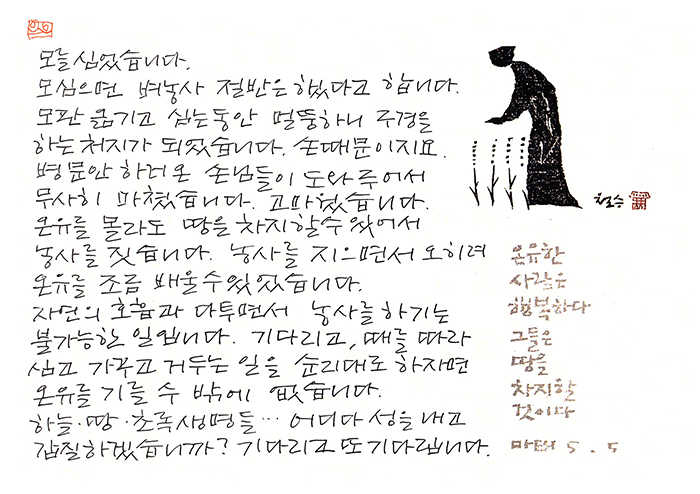 모를 심었습니다.
모심으면 벼농사 절반은 했다고 합니다.
모판 옮기고 심는동안 멀뚱하니 구경을
하는 처지가 되었습니다. 손때문이지요.
병문안 하러온 손님들이 도와주어서
무사히 마쳤습니다. 고마웠습니다.
온유를 몰라도 땅을 차지할수 있어서
농사를 짓습니다. 농사를 지으면서 오히려
온유를 조금 배울수있었습니다.
자연의 호흡과 다투면서 농사를 하기는
불가능한 일입니다. 기다리고, 때를 따라
심고 가꾸고 거두는 일을 순리대로 하자면
온유를 기를 수 밖에 없습니다.
하늘·땅·초록생명들… 어디다 성을 내고
갑질하겠습니까? 기다리고 또 기다립니다.
철수
온유한
사람은
행복하다
그들은
땅을
차지할
것이다
마태 5.5